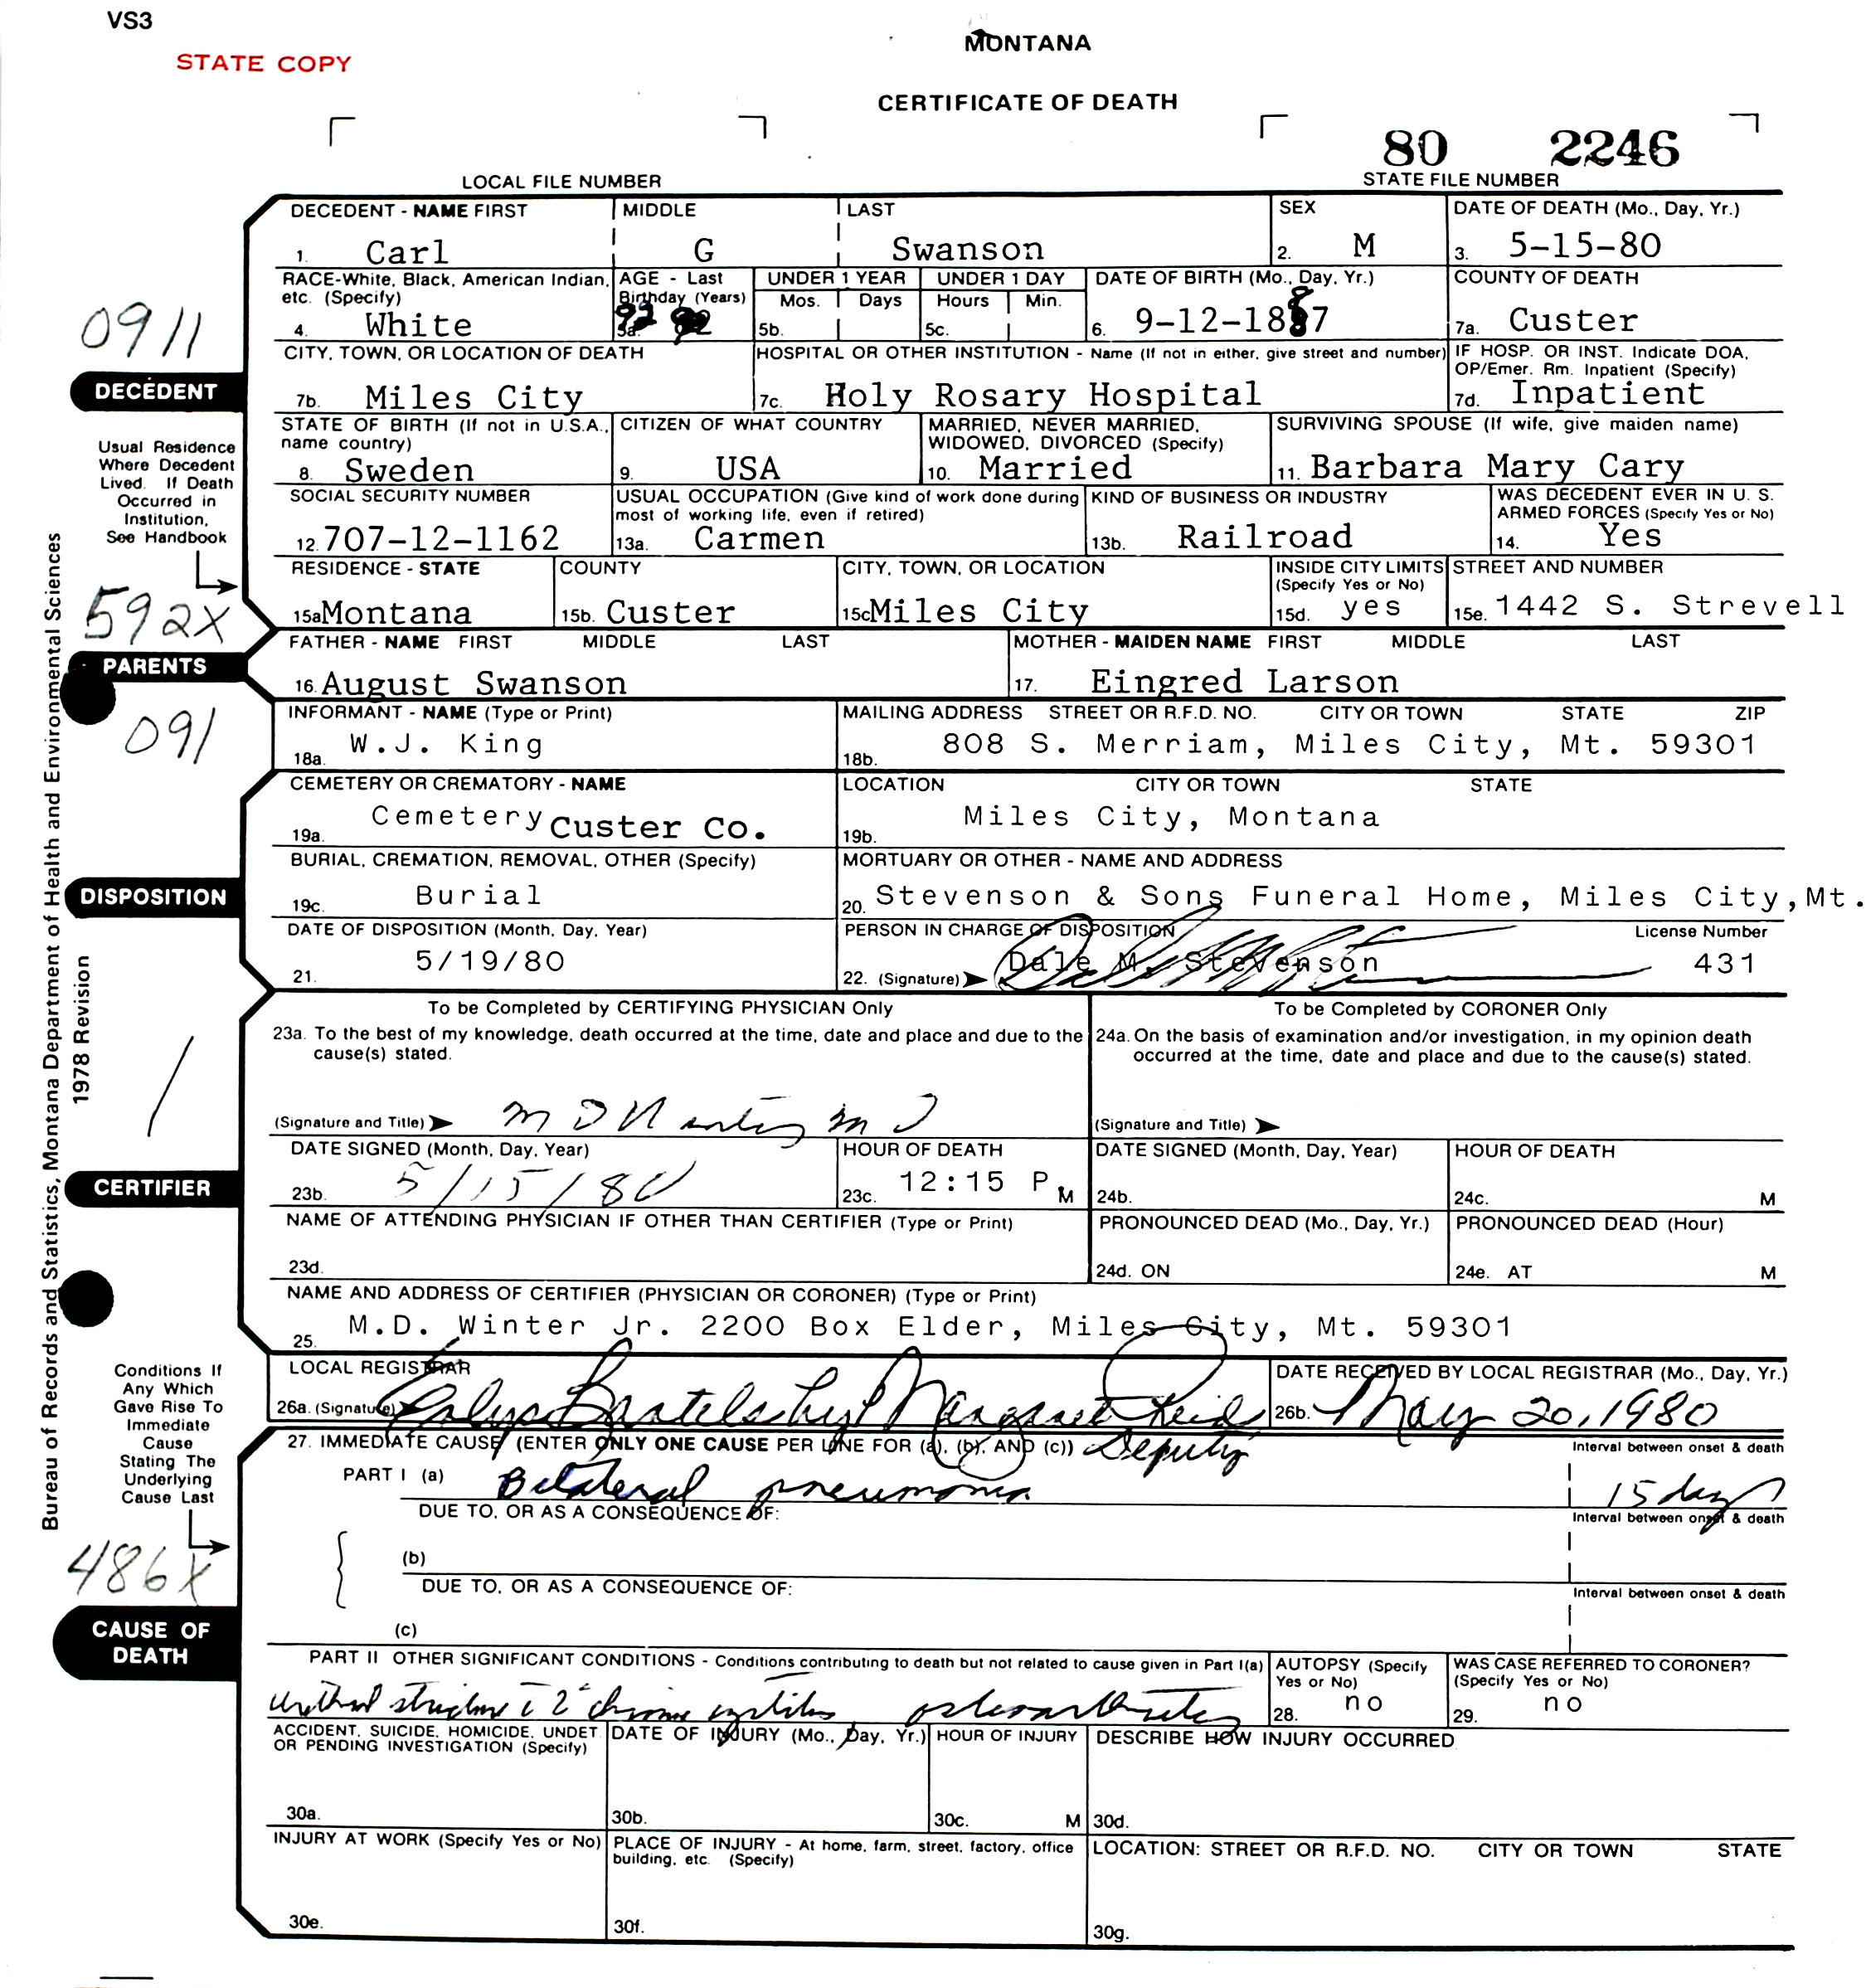 VS3
STATE COPY
MONTANA
CERTIFICATE OF DEATH
80 2246
LOCAL FILE NUMBER
STATE FILE NUMBER
DECEDENT - NAME FIRST MIDDLE LAST SEX DATE OF DEATH (Mo., Day, Yr.)
1. Carl G Swanson 2. M 3. 5-15-80
RACE-White, Black, American Indian, etc. (Specify) AGE - Last Birthday (Years) UNDER 1 YEAR UNDER 1 DAY DATE OF BIRTH (Mo., Day, Yr.) COUNTY OF DEATH
Mos. Days Hours Min.
4. White 5a. 92 5b. 5c. 6. 9-12-1887 8 7a. Custer
0911
DECEDENT
CITY, TOWN, OR LOCATION OF DEATH HOSPITAL OR OTHER INSTITUTION - Name (If not in either, give street and number) IF HOSP. OR INST. Indicate DOA, OP/Emer. Rm. Inpatient (Specify)
7b. Miles City 7c. Holy Rosary Hospital 7d. Inpatient
STATE OF BIRTH (If not in U.S.A., name country) CITIZEN OF WHAT COUNTRY MARRIED, NEVER MARRIED, WIDOWED, DIVORCED (Specify) SURVIVING SPOUSE (If wife, give maiden name)
8. Sweden 9. USA 10. Married 11. Barbara Mary Cary
Usual Residence
Where Decedent
Lived. If Death
Occurred in
Institution,
See Handbook
SOCIAL SECURITY NUMBER USUAL OCCUPATION (Give kind of work done during most of working life, even if retired) KIND OF BUSINESS OR INDUSTRY WAS DECEDENT EVER IN U. S. ARMED FORCES (Specify Yes or No)
12. 707-12-1162 13a. Carmen 13b. Railroad 14. Yes
RESIDENCE - STATE COUNTY CITY, TOWN, OR LOCATION INSIDE CITY LIMITS (Specify Yes or No) STREET AND NUMBER
15a Montana 15b. Custer 15c Miles City 15d. yes 15e. 1442 S. Strevell
592X
PARENTS
FATHER - NAME FIRST MIDDLE LAST MOTHER - MAIDEN NAME FIRST MIDDLE LAST
16. August Swanson 17. Eingred Larson
091
INFORMANT - NAME (Type or Print) MAILING ADDRESS STREET OR R.F.D. NO. CITY OR TOWN STATE ZIP
18a. W.J. King 18b. 808 S. Merriam, Miles City, Mt. 59301
CEMETERY OR CREMATORY - NAME LOCATION CITY OR TOWN STATE
19a. Cemetery Custer Co. 19b. Miles City, Montana
DISPOSITION
BURIAL, CREMATION, REMOVAL, OTHER (Specify) MORTUARY OR OTHER - NAME AND ADDRESS
19c. Burial 20. Stevenson & Sons Funeral Home, Miles City, Mt.
DATE OF DISPOSITION (Month, Day, Year) PERSON IN CHARGE OF DISPOSITION License Number
21. 5/19/80 22. (Signature) Dale M. Stevenson 431
To be Completed by CERTIFYING PHYSICIAN Only To be Completed by CORONER Only
23a. To the best of my knowledge, death occurred at the time, date and place and due to the cause(s) stated.
24a. On the basis of examination and/or investigation, in my opinion death occurred at the time, date and place and due to the cause(s) stated.
/
(Signature and Title) M D Winter MD (Signature and Title)
CERTIFIER
DATE SIGNED (Month, Day, Year) HOUR OF DEATH DATE SIGNED (Month, Day, Year) HOUR OF DEATH
23b. 5/15/80 23c. 12:15 P. M 24b. 24c. M
NAME OF ATTENDING PHYSICIAN IF OTHER THAN CERTIFIER (Type or Print) PRONOUNCED DEAD (Mo., Day, Yr.) PRONOUNCED DEAD (Hour)
23d. 24d. ON 24e. AT M
NAME AND ADDRESS OF CERTIFIER (PHYSICIAN OR CORONER) (Type or Print)
25. M.D. Winter Jr. 2200 Box Elder, Miles City, Mt. 59301
LOCAL REGISTRAR DATE RECEIVED BY LOCAL REGISTRAR (Mo., Day, Yr.)
26a. (Signature) Bartels by Margaret Reid 26b. May 20, 1980
Deputy
Conditions If
Any Which
Gave Rise To
Immediate
Cause
Stating The
Underlying
Cause Last
27. IMMEDIATE CAUSE (ENTER ONLY ONE CAUSE PER LINE FOR (a), (b), AND (c)) Interval between onset & death
PART I (a) Bilateral pneumonia 15 days
DUE TO, OR AS A CONSEQUENCE OF: Interval between onset & death
486X
(b)
DUE TO, OR AS A CONSEQUENCE OF: Interval between onset & death
(c)
CAUSE OF
DEATH
PART II OTHER SIGNIFICANT CONDITIONS - Conditions contributing to death but not related to cause given in Part I(a) AUTOPSY (Specify Yes or No) WAS CASE REFERRED TO CORONER? (Specify Yes or No)
urethral stricture c 2° chronic cystitis osteoarthritis 28. no 29. no
ACCIDENT, SUICIDE, HOMICIDE, UNDET OR PENDING INVESTIGATION (Specify) DATE OF INJURY (Mo., Day, Yr.) HOUR OF INJURY DESCRIBE HOW INJURY OCCURRED
30a. 30b. 30c. M 30d.
INJURY AT WORK (Specify Yes or No) PLACE OF INJURY - At home, farm, street, factory, office building, etc. (Specify) LOCATION: STREET OR R.F.D. NO. CITY OR TOWN STATE
30e. 30f. 30g.
Bureau of Records and Statistics, Montana Department of Health and Environmental Sciences
1978 Revision